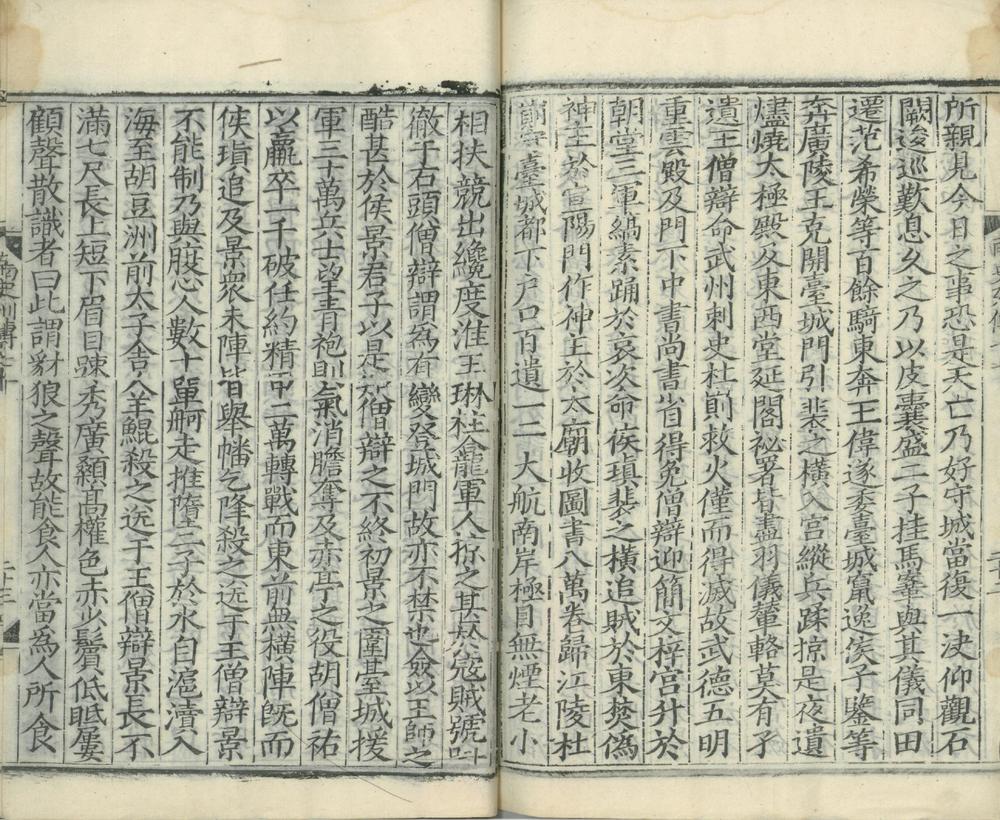 所親見今日之事恐是天亡乃好守城當復一决仰觀石
闕逡巡歎息久之乃以皮囊盛二子挂馬鞌與其儀同田
遷范希榮等百餘騎東奔王偉遂委臺城竄逸侯子鑒等
奔廣陵王克開臺城門引裴之橫入宮縱兵蹂掠是夜遺
燼燒太極殿及東西堂延閣祕署皆盡羽儀輦輅莫有孑
遺王僧辯命武州刺史杜崱救火僅而得滅故武德五明
重雲殿及門下中書尚書省得免僧辯迎簡文梓宮升於
朝堂三軍縞素踊於哀次命侯瑱裴之橫追賊於東焚僞
神主於宣陽門作神主於太廟收圖書八萬卷歸江陵杜
崱守臺城都下户口百遺一二大航南岸極目無煙老小
相扶競出纔度淮王琳杜龕軍人掠之甚於寇賊號叫
徹于石頭僧辯謂為有變登城門故亦不禁也僉以王師之
酷甚於侯景君子以是知僧辯之不終初景之圍臺城援
軍三十萬兵士望青袍則氣消膽奪及赤亭之役胡僧祐
以羸卒一千破任約精甲二萬轉戰而東前無橫陣既而
侯瑱追及景衆未陣皆舉幡乞降景
不能制乃與腹心人數十單舸走推墮二子於水自滬瀆入
海至胡豆洲前太子舍人羊鯤殺之送于王僧辯景長不
滿七尺長上短下眉目疎秀廣顙高權色赤少鬢低眡屢
顧聲散識者曰此謂豺狼之聲故能食人亦當為人所食
南史列傳
二十三